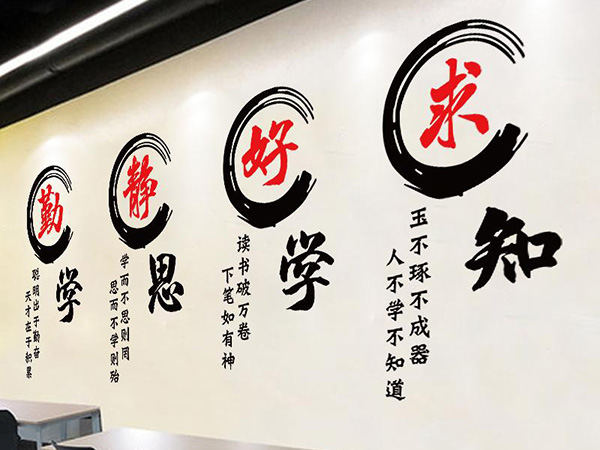 勤学
聪明出于勤奋
天才在于积累
静思
学而不思则罔
思而不学则殆
好学
读书破万卷
下笔如有神
求知
玉不琢不成器
人不学不知道